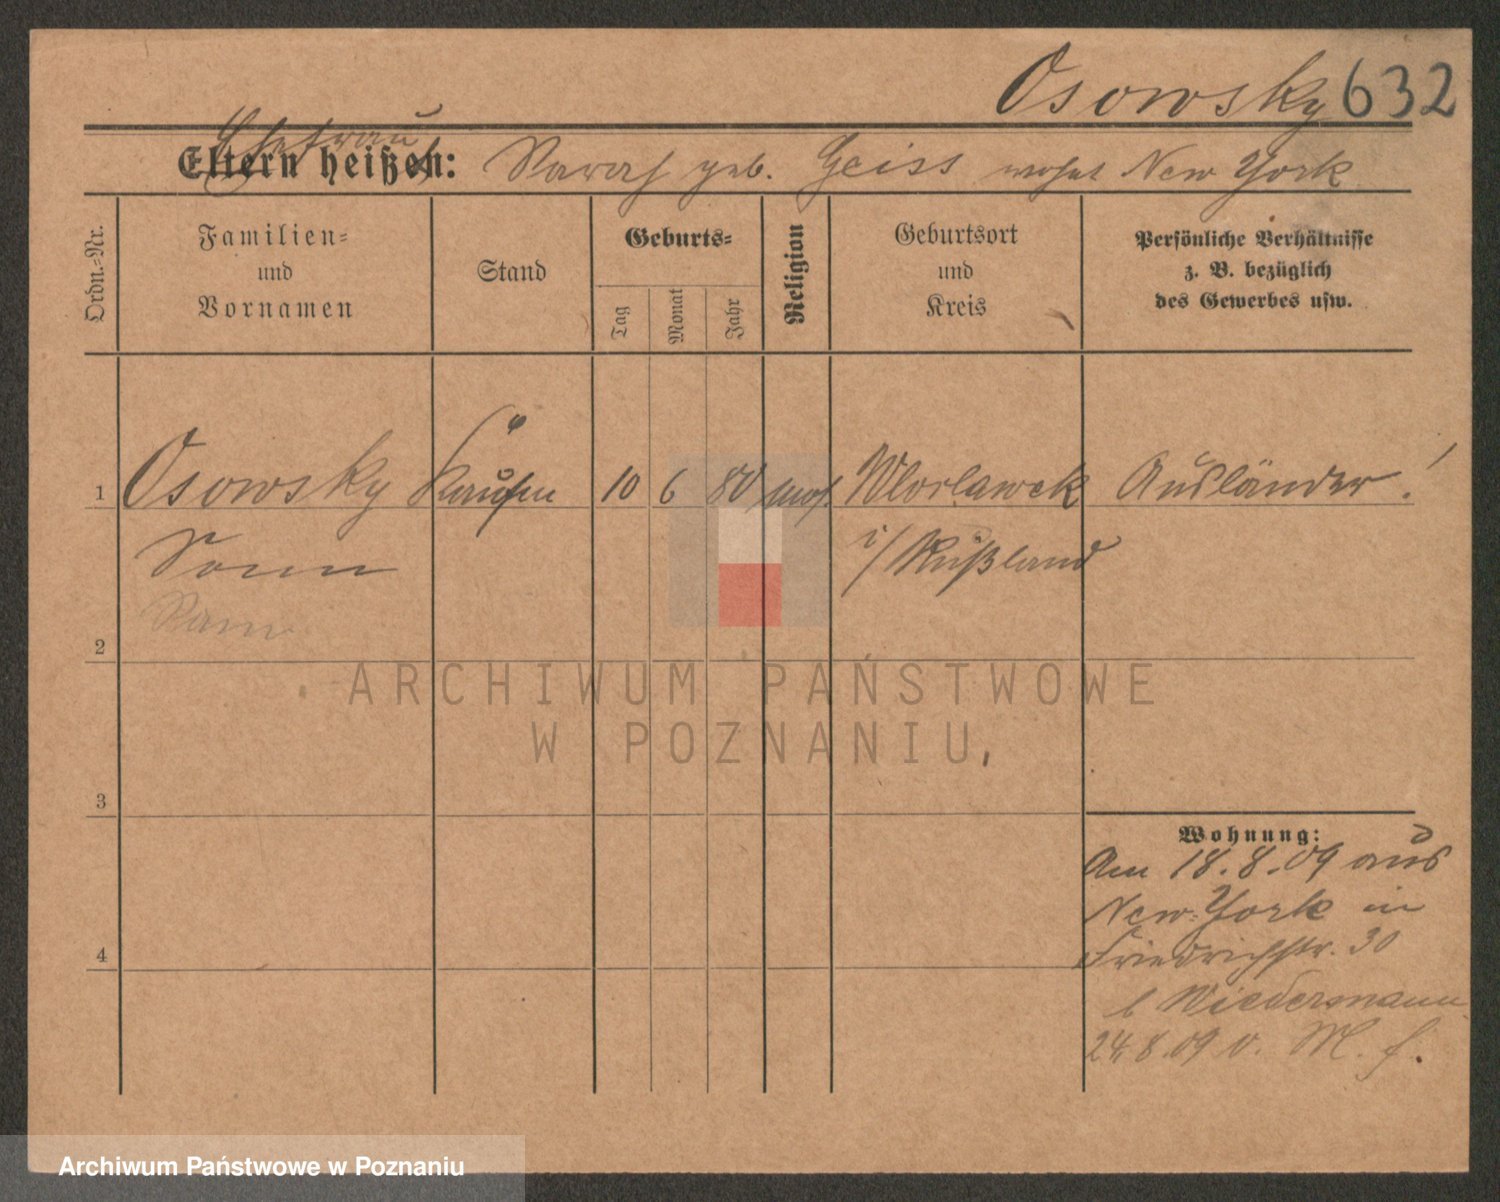 Osowsky 632
Ehefrau
Eltern heißen: Sarah geb. Geiss wohnt New York
Ordn.-Nr.
Familien-
und
Vornamen
Stand
Geburts-
Tag
Monat
Jahr
Religion
Geburtsort
und
Kreis
Persönliche Verhältnisse
z. B. bezüglich
des Gewerbes usw.
1 Osowsky Kaufm 10 6 80 mos. Wloclawek Ausländer!
i/Rußland
2
3
4
Wohnung:
Am 18.8.09 aus
New-York in
Friedrichstr. 30
b Wiedermann
24.8.09 v. M. f.
ARCHIWUM PAŃSTWOWE
W POZNANIU
Archiwum Państwowe w Poznaniu